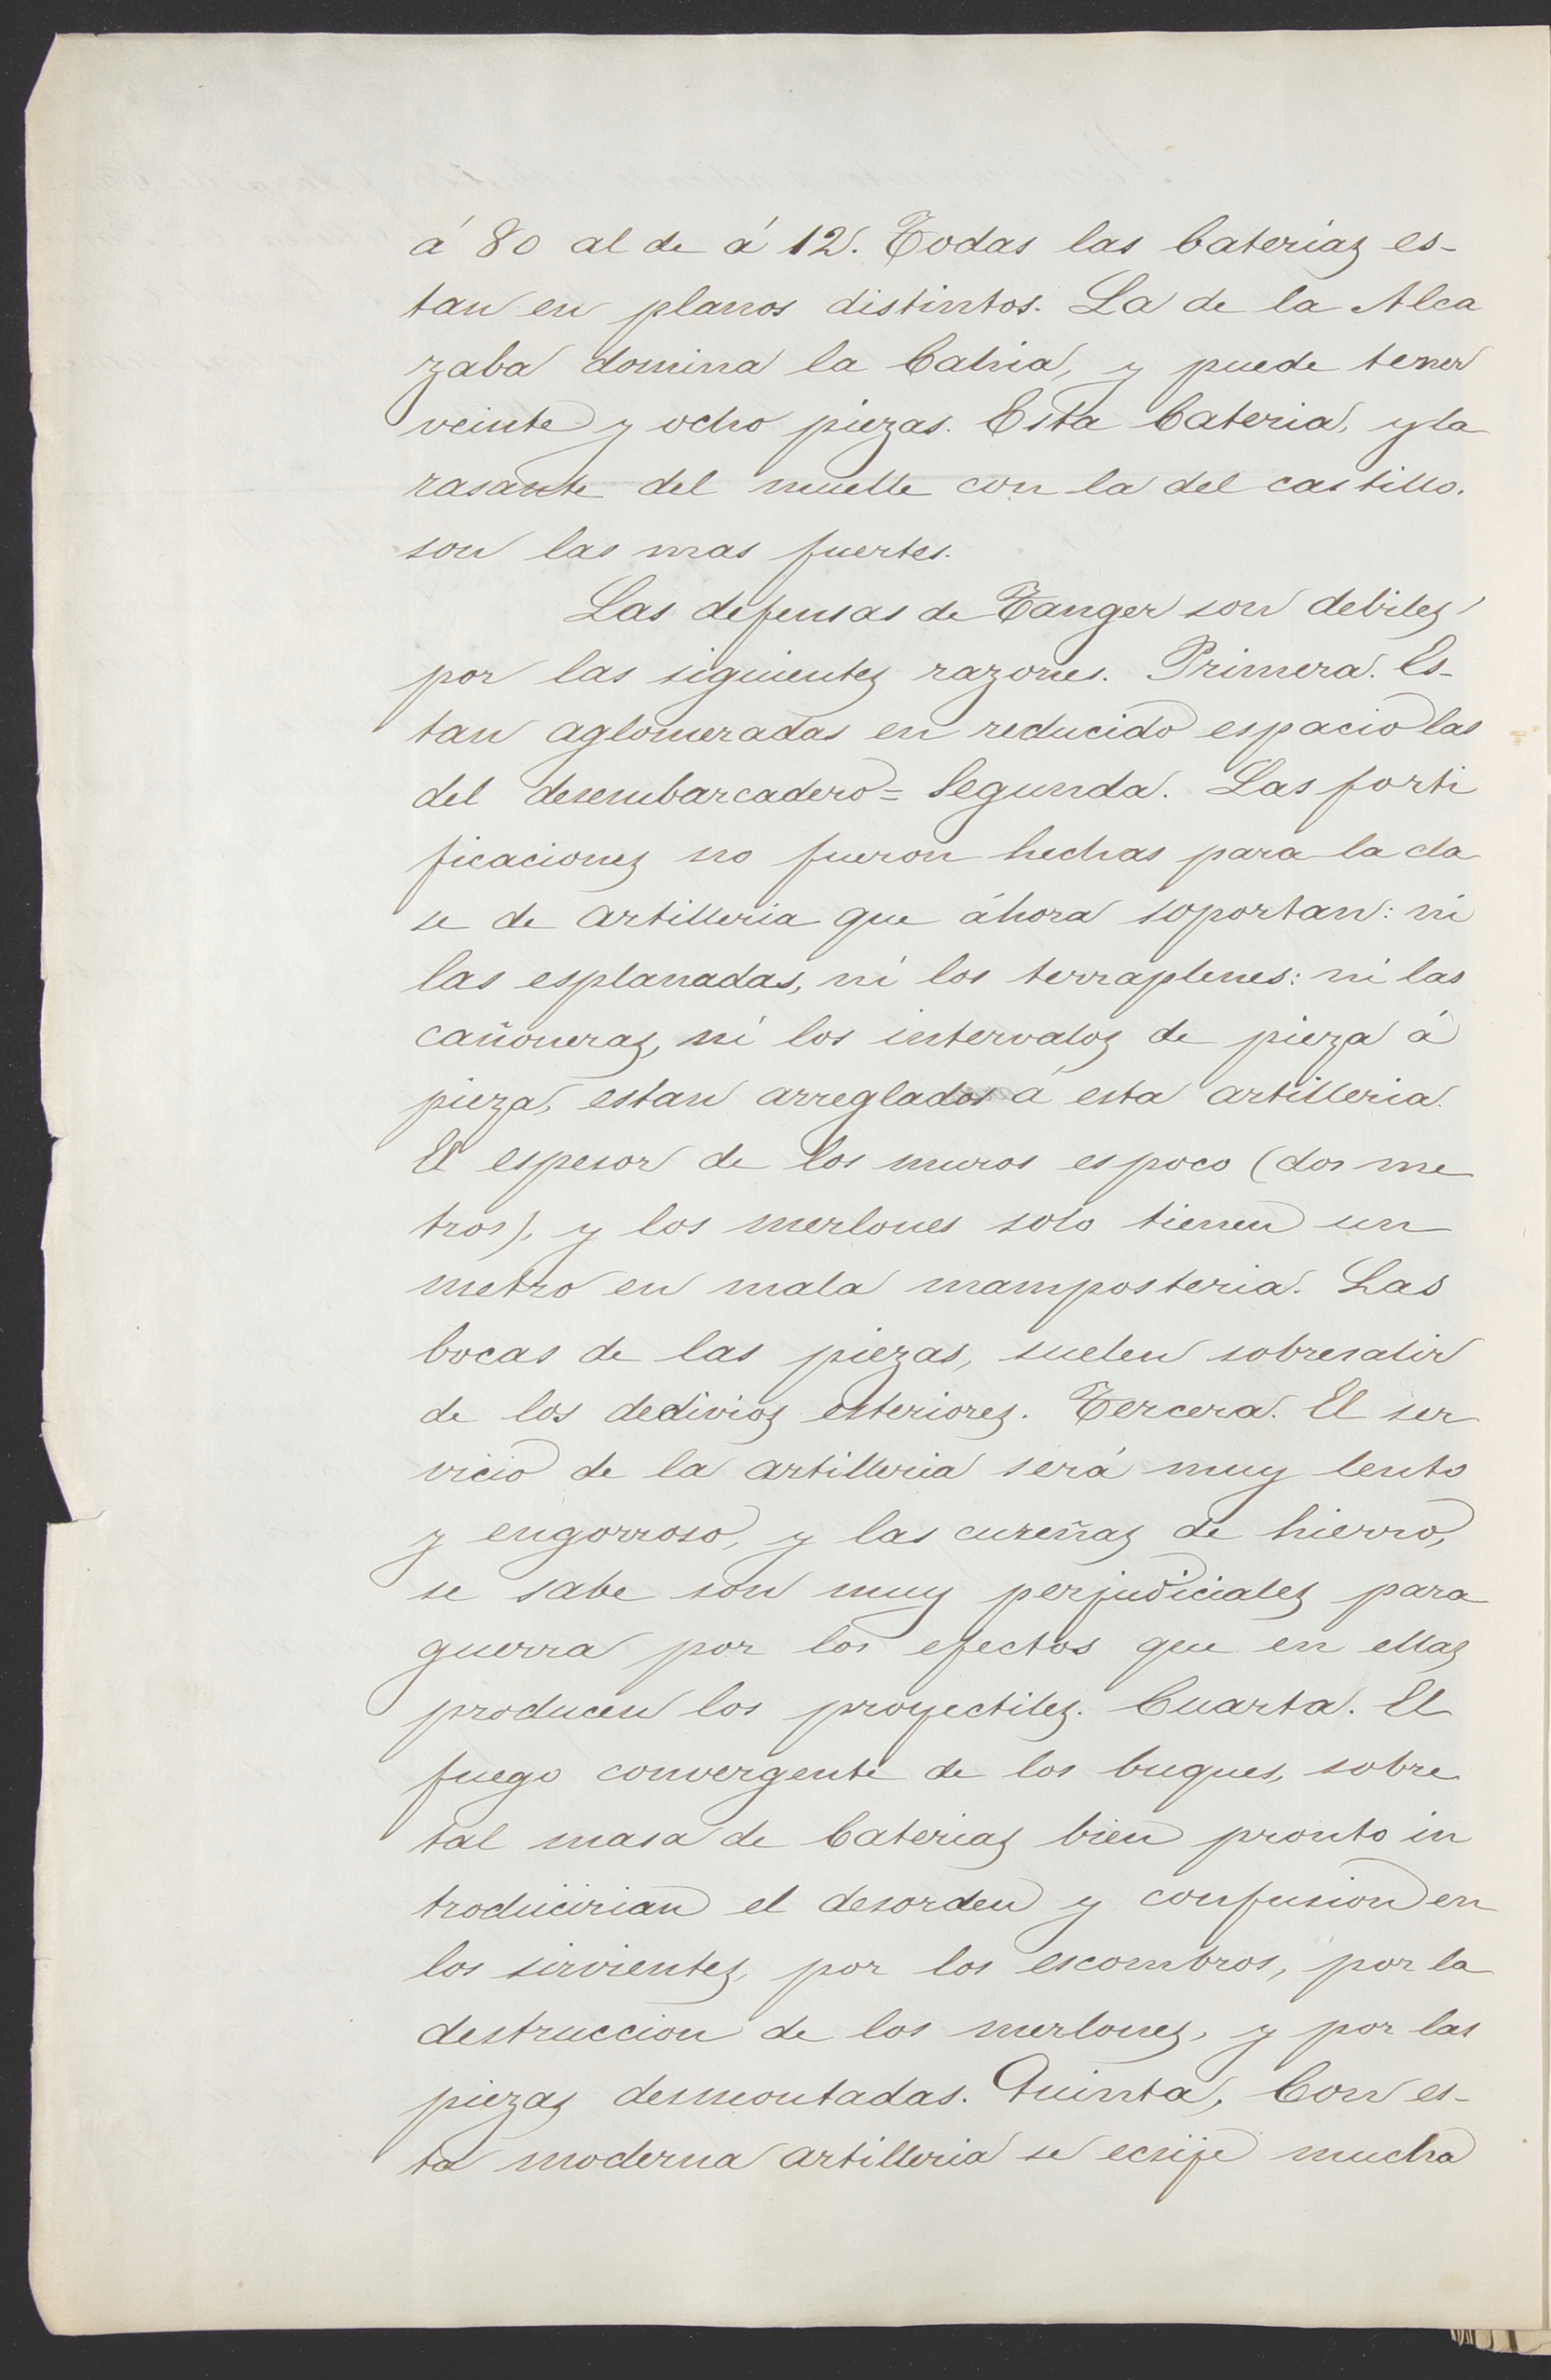 á 80 al de á 12. Todas las baterias es-
tan en planos distintos. La de la Alca
zaba domina la bahia, y puede tener
veinte y ocho piezas. Esta bateria, y la
rasante del muelle con la del castillo.
son las mas fuertes.
Las defensas de Tanger son debiles
por las siguientes razones. Primera. Es-
tan aglomeradas en reducido espacio las
del desembarcadero = Segunda. Las forti
ficaciones no fueron hechas para la cla
se de artilleria que áhora soportan: ni
las esplanadas, ni los terraplenes: ni las
cañoneras, ni los intervalos de pieza á
pieza, estan arreglados á esta artilleria.
El espesor de los muros es poco (dos me
tros), y los merlones solo tienen un
metro en mala mamposteria. Las
bocas de las piezas, suelen sobresalir
de los declivios esteriores. Tercera. El ser
vicio de la artilleria será muy lento
y engorroso, y las cureñas de hierro,
se sabe son muy perjudiciales para
guerra por los efectos que en ellas
producen los proyectiles. Cuarta. El
fuego convergente de los buques, sobre
tal masa de baterias bien pronto in
troducirian el desorden y confusion en
los sirvientes, por los escombros, por la
destruccion de los merlones, y por las
piezas desmontadas. Quinta, Con es-
ta moderna artilleria se ecsije mucha